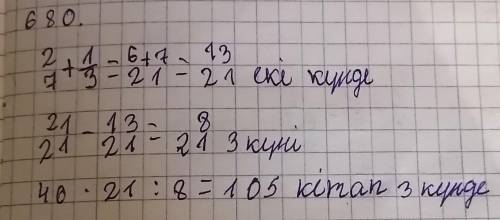 680.
2/7 + 1/3 = 6+7/21 = 13/21 екі күнде
21/21 - 13/21 = 8/21 3 күні
40 · 21 : 8 = 105 кітап 3 күнде